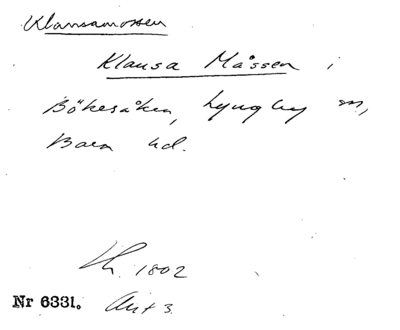 Klansamossen
Klausa Måssen i
Bökesåkra, Lyngby sn,
Bara hd.
Lh. 1802
Nr 6331. Akt 3.